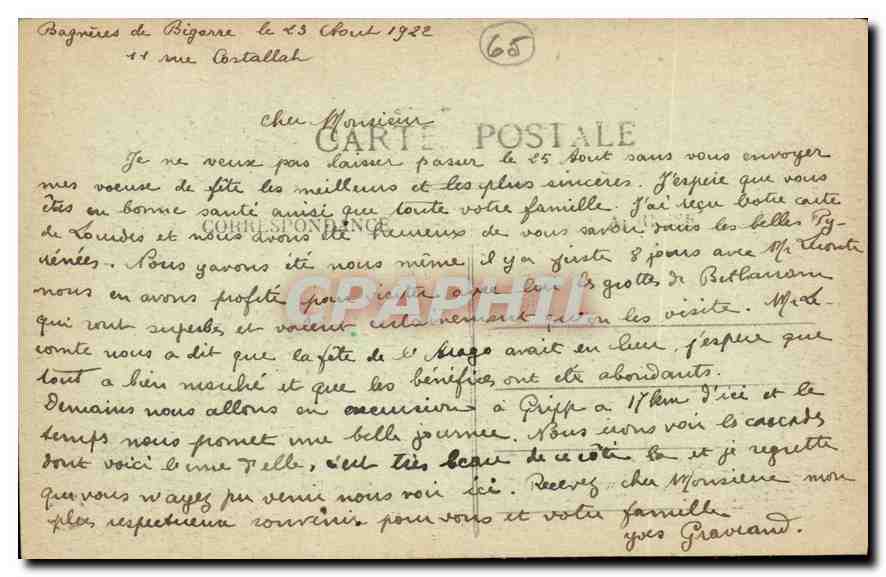 Bagnères de Bigorre le 23 Août 1922
65
11 rue Costallat
cher Monsieur
CARTE POSTALE
Je ne veux pas laisser passer le 25 Aout sans vous envoyer
mes voeux de fête les meilleurs et les plus sincères. J'espère que vous
êtes en bonne santé ainsi que toute votre famille. J'ai reçu votre carte
CORRESPONDANCE
de Lourdes et nous avons été heureux de vous savoir dans les belles Py-
rénées. Nous y avons été nous même il y a juste 8 jours avec Mr Lecomte
nous en avons profité pour visiter avec lui les grottes de Betharram
CPAPHIL
qui sont superbes et valent certainement qu'on les visite. Mr Le-
comte nous a dit que la fête de l'Arago avait eu lieu, j'espère que
tout a bien marché et que les bénéfices ont été abondants.
Demain nous allons en excursion à Gripp a 17 km d'ici et le
temps nous promet une belle journée. Nous irons voir les cascades
dont voici l'une d'elle, c'est très beau de ce côté la et je regrette
que vous n'ayez pu venir nous voir ici. Recevez cher Monsieur mon
plus respectueux souvenir pour vous et votre famille
yves Graveand.